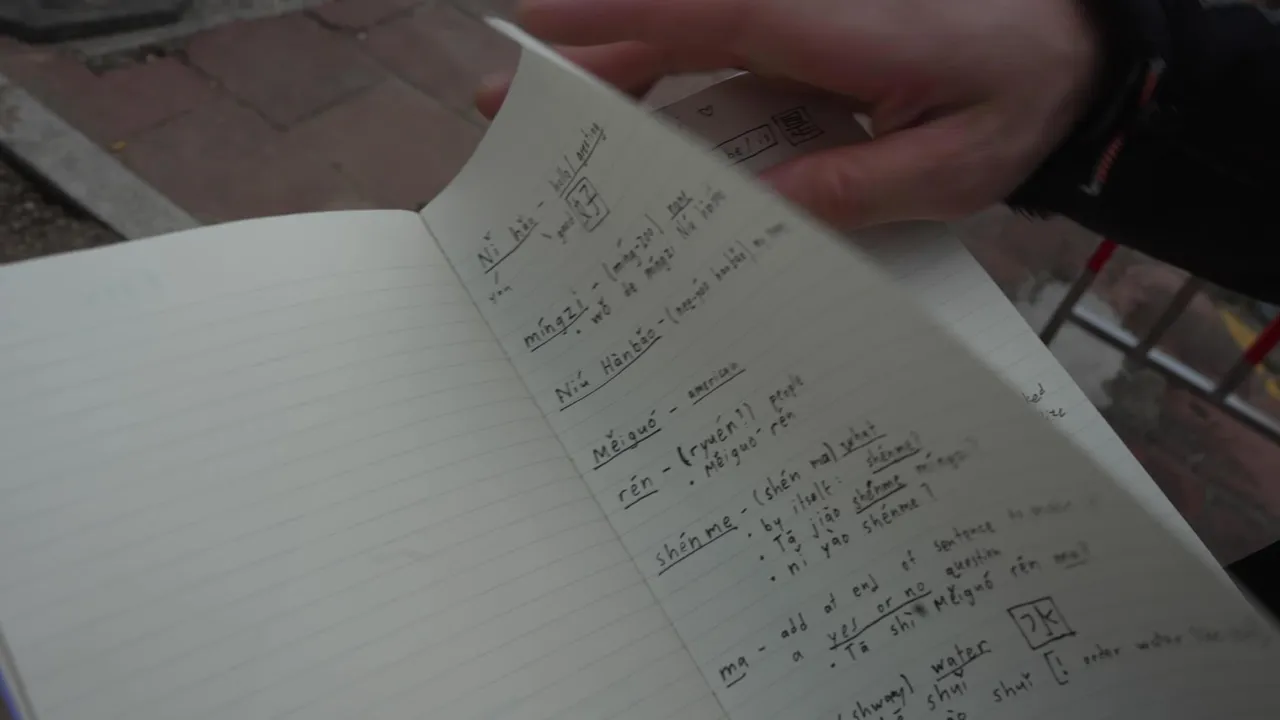 Nǐ hǎo - hello/greeting
you \ good 好
míngzi - (míng-zoo) name
• wǒ de míngzi
Niú Hànbǎo -
Měiguó - american
rén - (ryuén?) people
• Měiguó rén
shénme - (shén ma) what
• by itself: shénme?
• Tā jiào shénme míngzi?
• nǐ yào shénme?
ma - add at end of sentence to make
a yes or no question
• Tā shì Měiguó rén ma?
(shway) water 水
shuǐ
shuǐ [! order water
♥
be/is 是